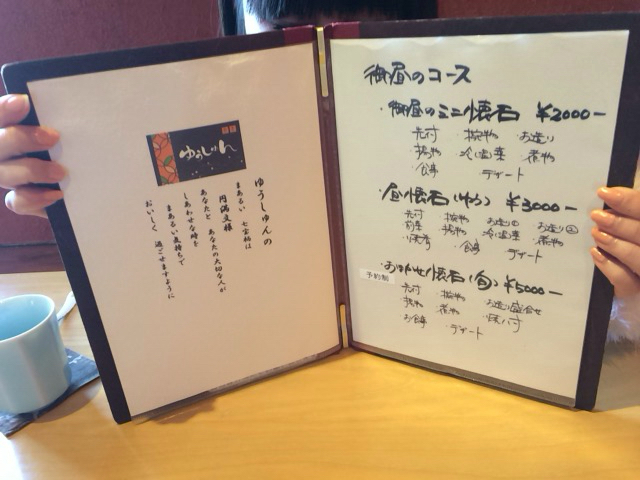 ゆうしゅん
ゆうしゅんの
まあるい 七宝柄は
円満文様
あなたと あなたの大切な人が
しあわせな時を
まあるい気持ちで
おいしく 過ごせますように
御昼のコース
・御昼のミニ懐石 ¥2000-
先付 椀物 お造り
揚物 冷し菜 煮物
食事 デザート
・昼懐石(ゆう) ¥3000-
先付 椀物 お造り① お造り②
前菜 揚物 冷し菜 煮物
焼肴 食事 デザート
・おまかせ懐石(旬) ¥5000-
予約制
先付 椀物 お造り盛合せ
揚物 煮物 焼八寸
お食事 デザート